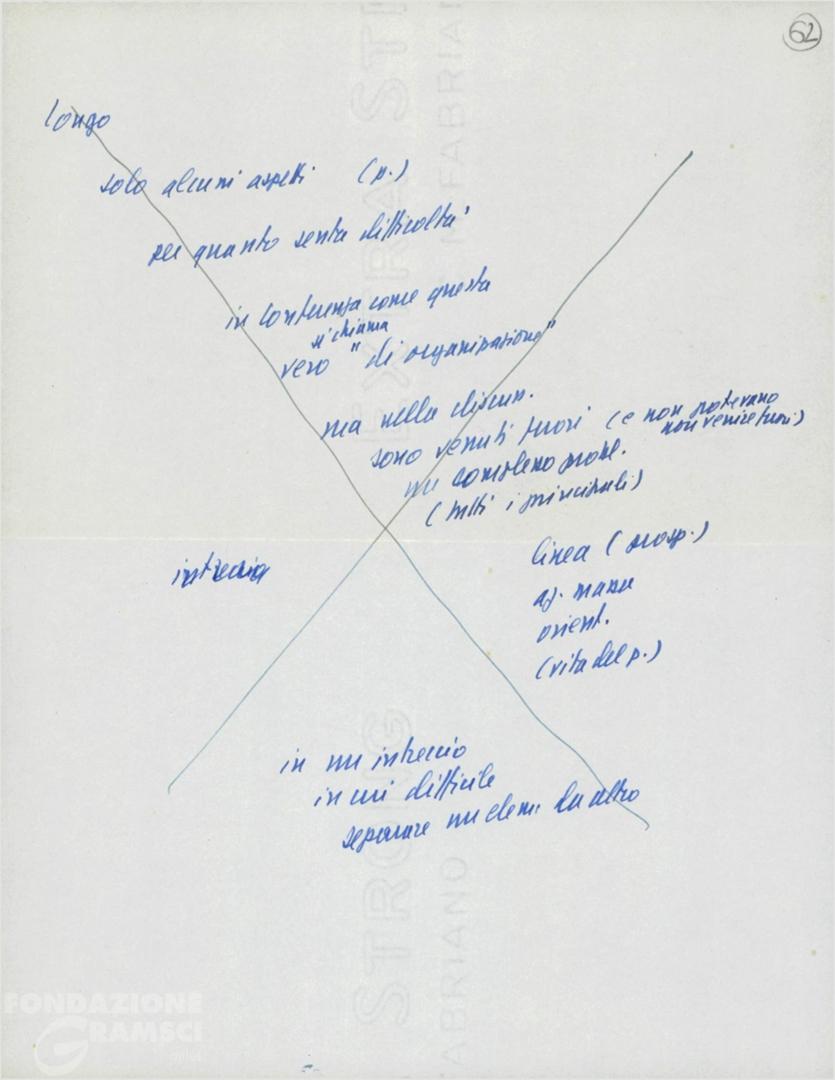 62
Longo
solo alcuni aspetti (p.)
per quanto senta difficoltà
in conferenza come questa
si chiama
vero "di organizzazione"
ma nella discuss.
sono venuti fuori (e non potevano
non venire fuori)
un complesso probl.
(tutti i principali)
intreccio
linea (prosp.)
az. massa
orient.
(vita del p.)
in un intreccio
in cui difficile
separare un elem. da altro
EXTRA STRONG
FABRIANO
STRONG
FABRIANO
FONDAZIONE
GRAMSCI